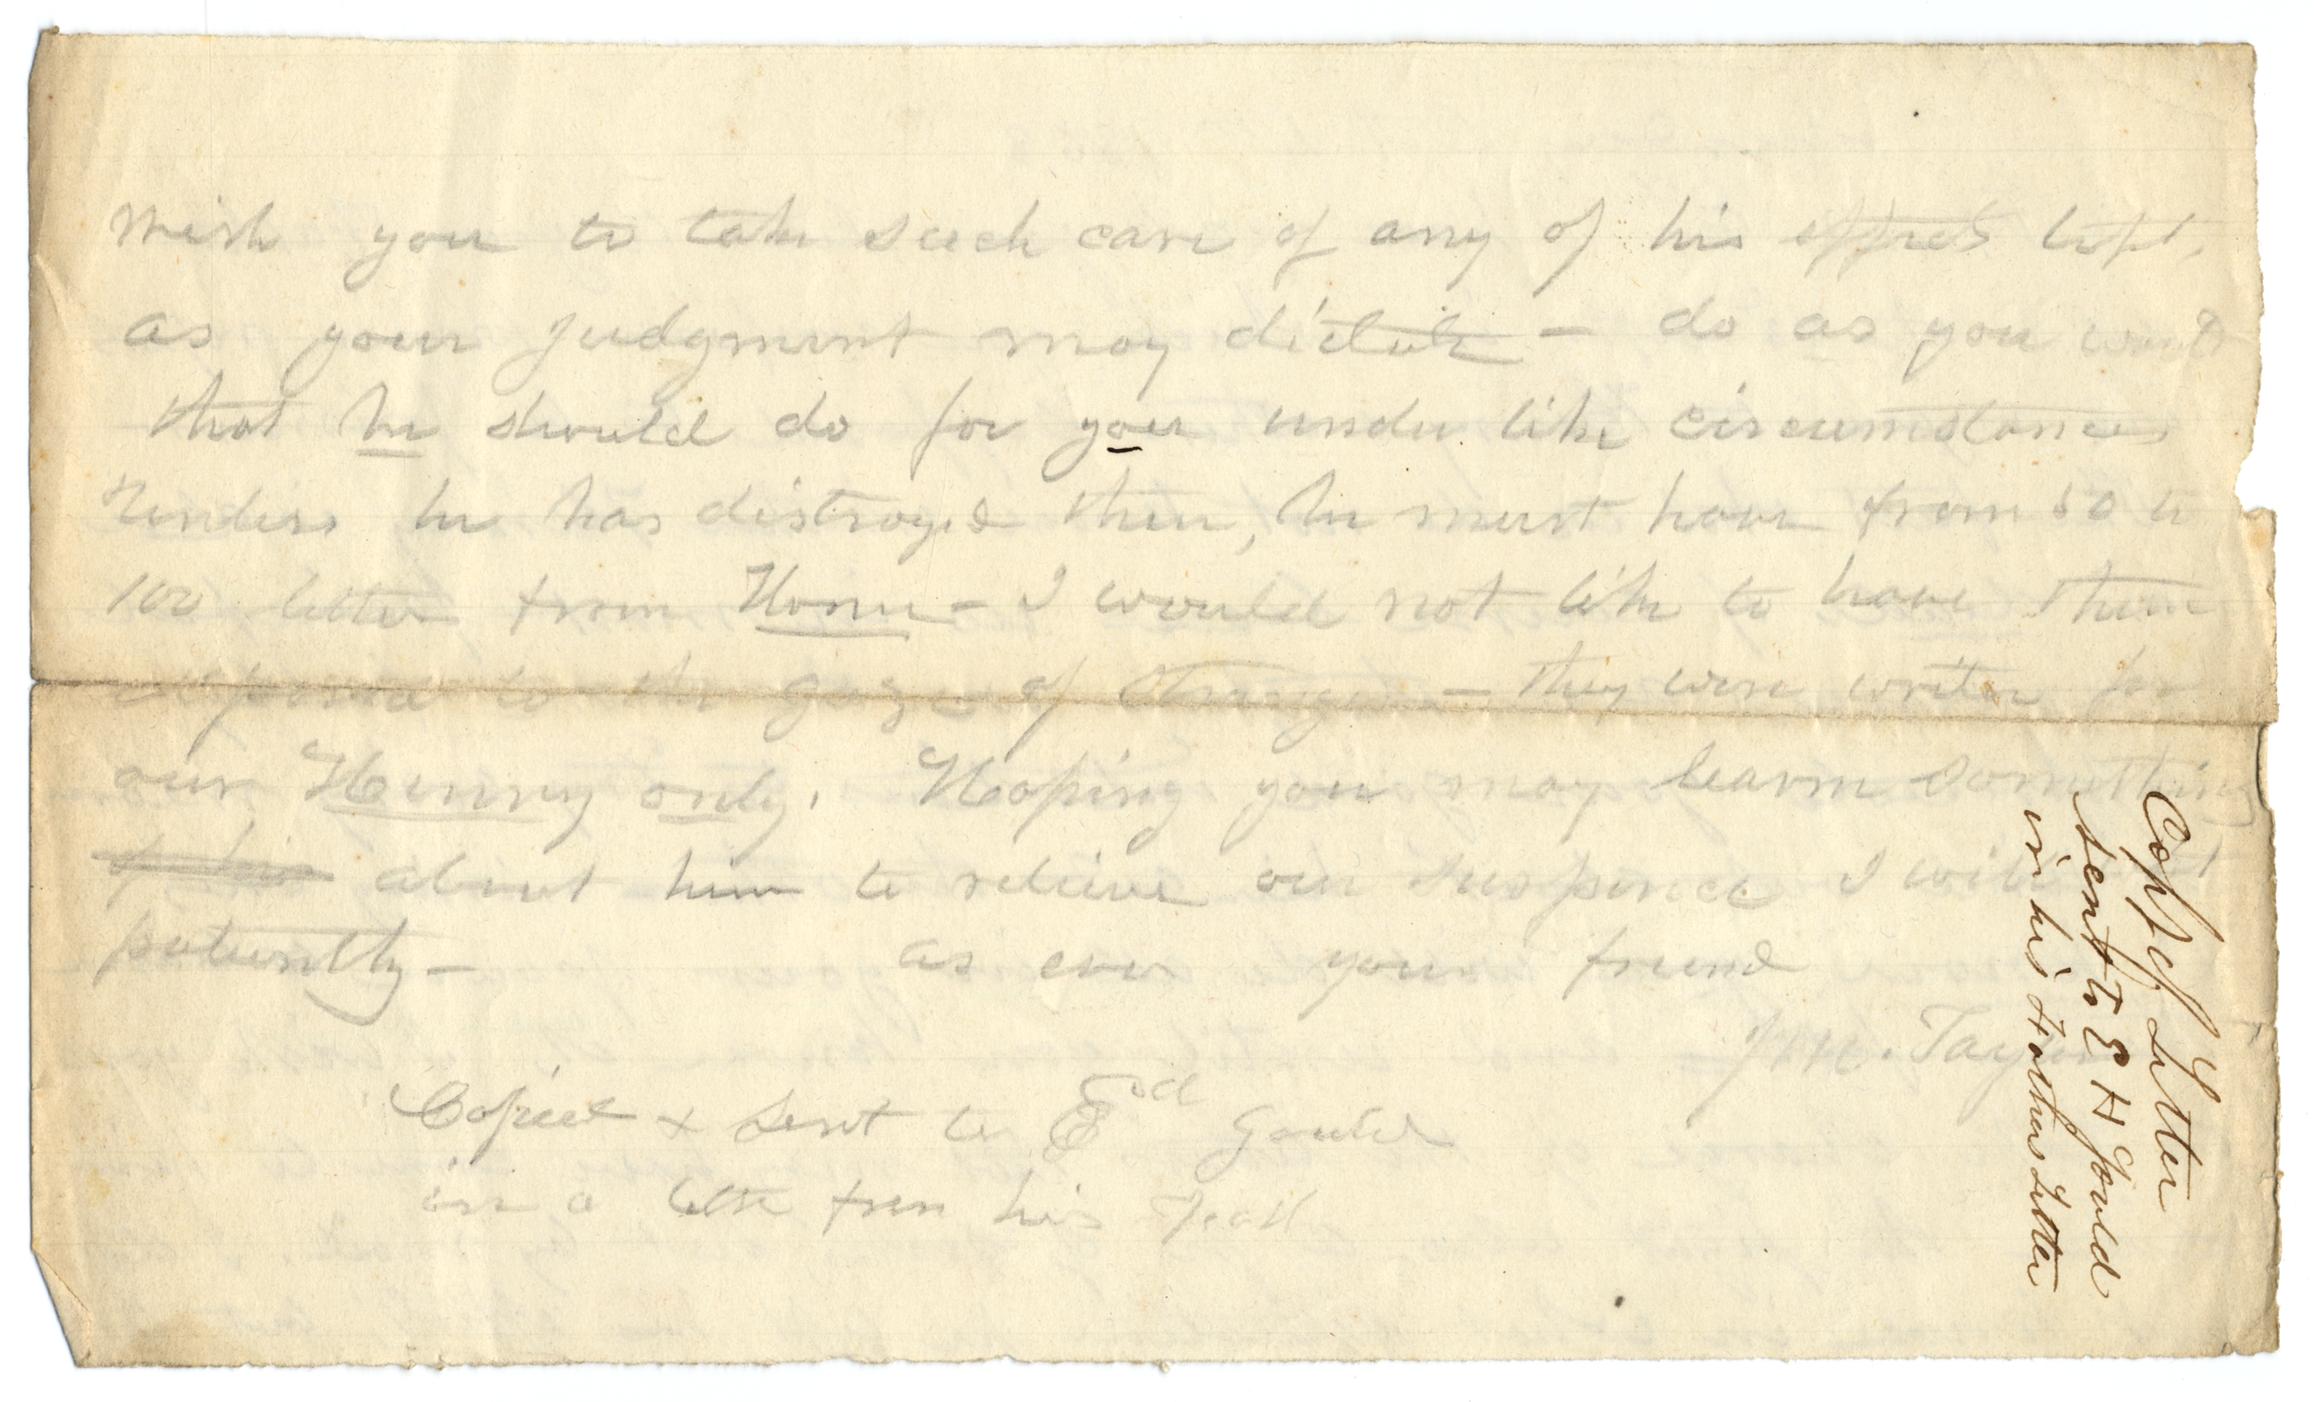 wish you to take such care of any of his effects left,
as your judgment may dictate - do as you would
that he should do for you under like circumstances
Unless he has distroyed them, he must have from 50 to
100 letter from Home - I would not like to have them
exposed to the gaze of strangers - they were writen for
our Henry only. Hoping you may learn something
of his about him to relieve our suspence I will
patiently - as ever your friend
J M. Taylor
Copied & sent to Ed Gould
in a lettr from his
Copy of Letter
sent to E H Gould
in his Fathers Letter